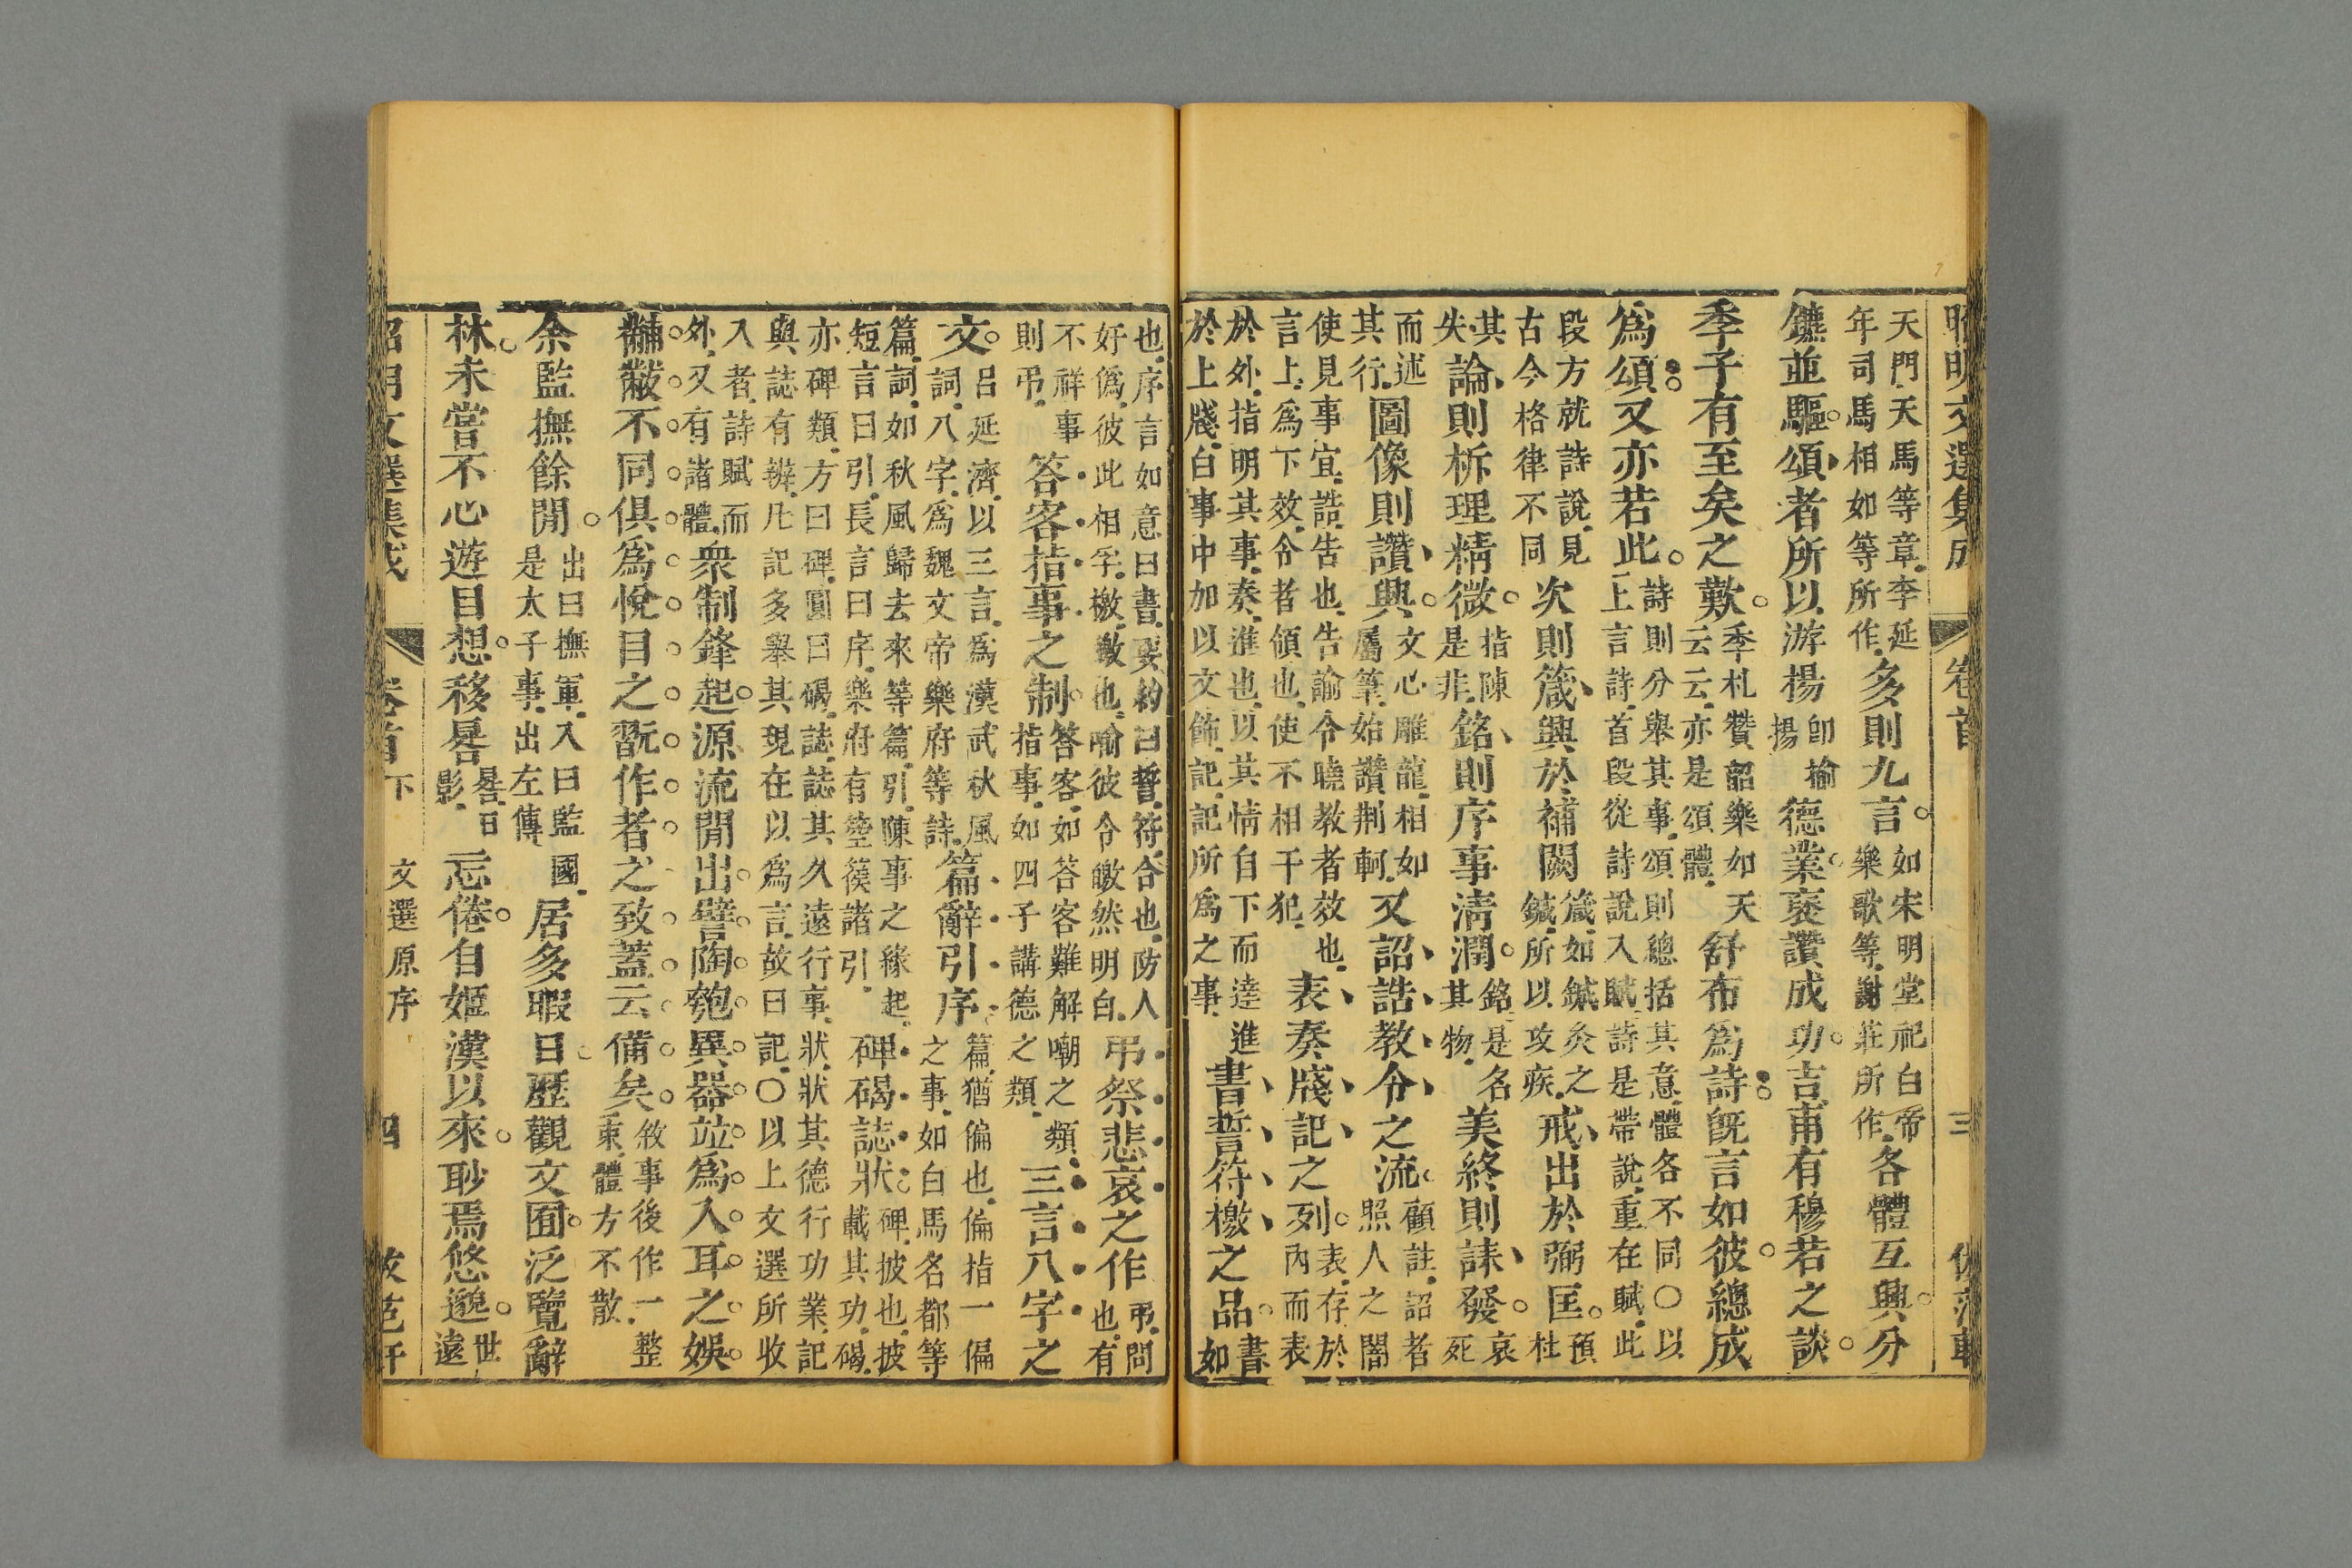 昭明文選集成 卷首 三
天門天馬等章李延
年司馬相如等所作
多則九言
如宋明堂祀白帝
樂歌等謝莊所作
各體互興分
鑣並驅頌者所以游揚
卽揄
揚
德業褒讚成功吉甫有穆若之談
季子有至矣之歎
季札贊韶樂如天
云云亦是頌體
舒布爲詩旣言如彼總成
爲頌又亦若此
詩則分舉其事頌則總括其意體各不同○以
上言詩首段從詩說入賦詩是帶說重在賦此
段方就詩說見
古今格律不同
次則箴興於補闕
箴如鍼灸之
鍼所以攻疾
戒出於弼匡
預
杜
其
失
論則析理精微
指陳
是非
銘則序事淸潤
銘是名
其物
美終則誄發
哀
死
而述
其行
圖像則讚興
文心雕龍相如
屬筆始讚荆軻
又詔誥教令之流
顧註詔者
照人之闇
使見事宜誥告也告諭令曉教者效也
言上爲下效令者領也使不相干犯
表奏牋記之列
表存於
內而表
於外指明其事奏進也以其情自下而達進
於上牋白事中加以文飾記記所爲之事
書誓符檄之品
書
如
也序言如意曰書要約曰誓符合也防人
好僞彼此相孚檄皦也喻彼令皦然明白
弔祭悲哀之作
弔問
也有
不祥事
則弔
答客指事之制
答客如答客難解嘲之類
指事如四子講德之類
三言八字之
文
呂延濟以三言爲漢武秋風
詞八字爲魏文帝樂府等詩
篇辭引序
篇猶偏也偏指一偏
之事如白馬名都等
篇詞如秋風歸去來等篇引陳事之緣起
短言曰引長言曰序樂府有箜篌諸引
碑碣誌狀
碑披也披
載其功碣
亦碑類方曰碑圓曰碣誌誌其久遠行事狀狀其德行功業記
與誌有辨凡記多舉其現在以爲言故曰記○以上文選所收
入者詩賦而
外又有諸體
衆制鋒起源流閒出譬陶匏異器竝爲入耳之娛
黼黻不同俱爲悅目之翫作者之致蓋云備矣
敘事後作一整
束體方不散
余監撫餘閒
出曰撫軍入曰監國
是太子事出左傳
居多暇日歷觀文囿泛覽辭
林未嘗不心遊目想移晷
晷日
影
忘倦自姬漢以來眇焉悠邈
世
遠
昭明文選集成 卷首下 文選原序 四